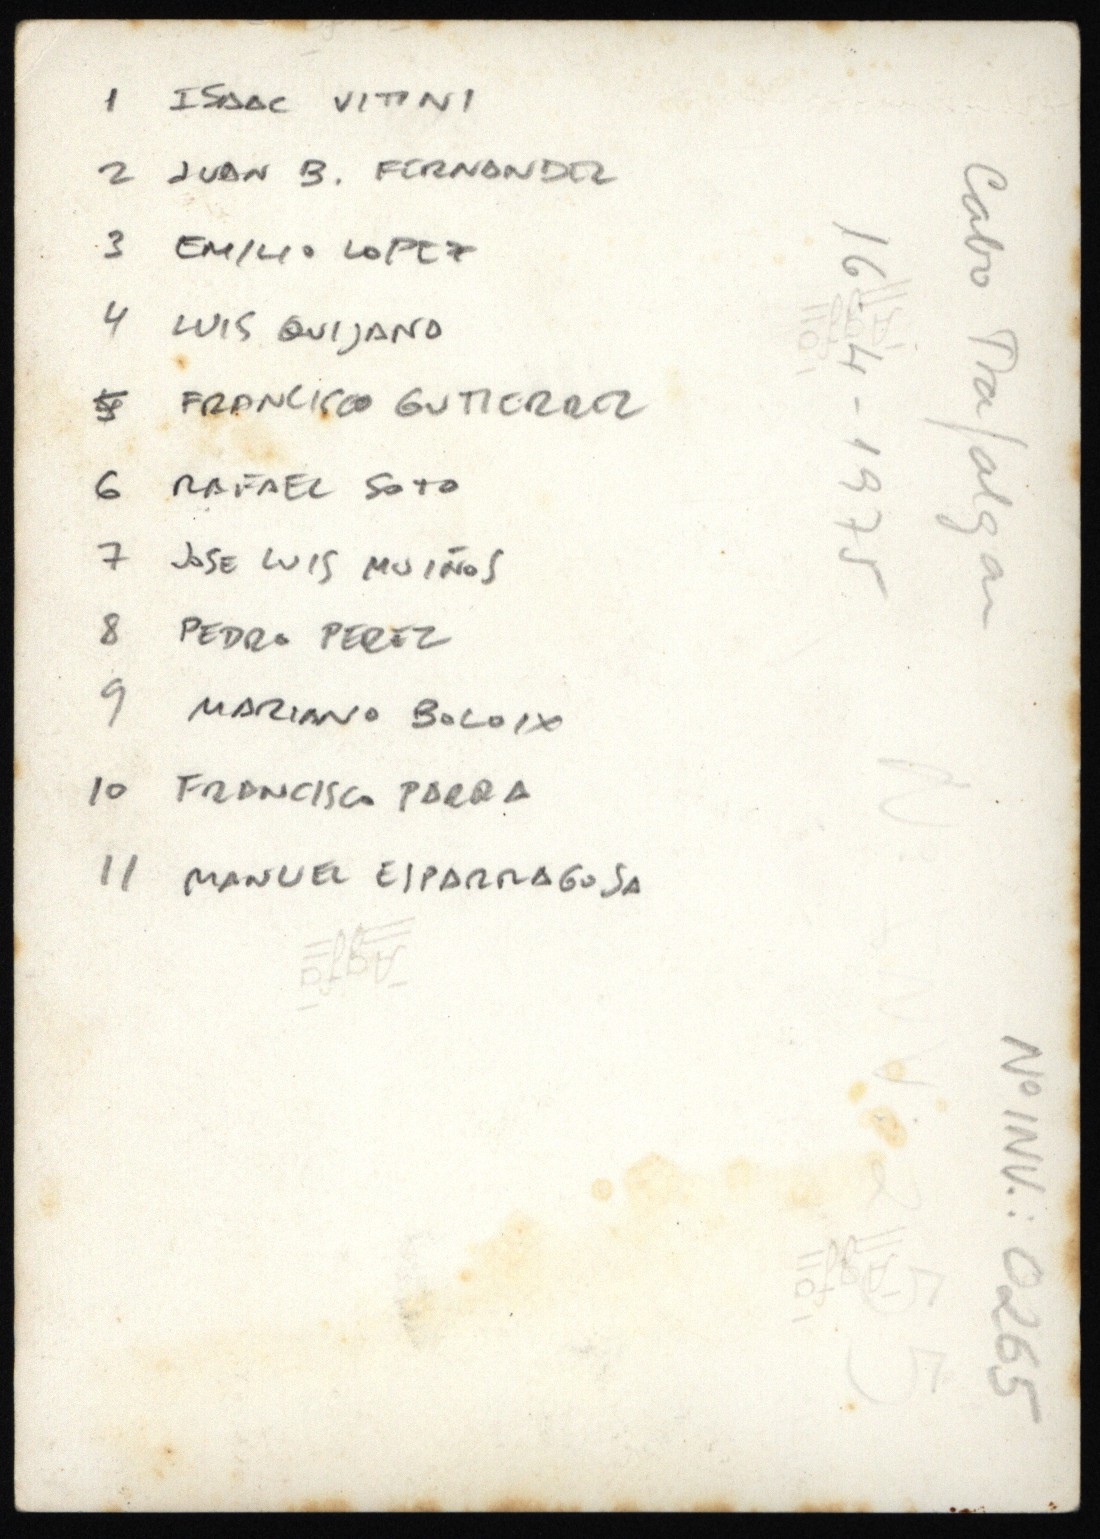 1 ISAAC VITINI
2 JUAN B. FERNANDEZ
3 EMILIO LOPEZ
4 LUIS QUIJANO
5 FRANCISCO GUTIERREZ
6 RAFAEL SOTO
7 JOSE LUIS MUIÑOS
8 PEDRO PEREZ
9 MARIANO BOLOIX
10 FRANCISCO PARRA
11 MANUEL ESPARRAGOSA
Cabo Trafalgar
16-4-1975
Nº INV.: 0265
Agfa
Agfa
Agfa